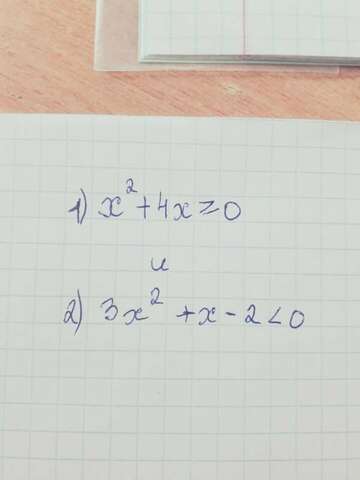 1) x² + 4x ≥ 0
и
2) 3x² + x - 2 < 0